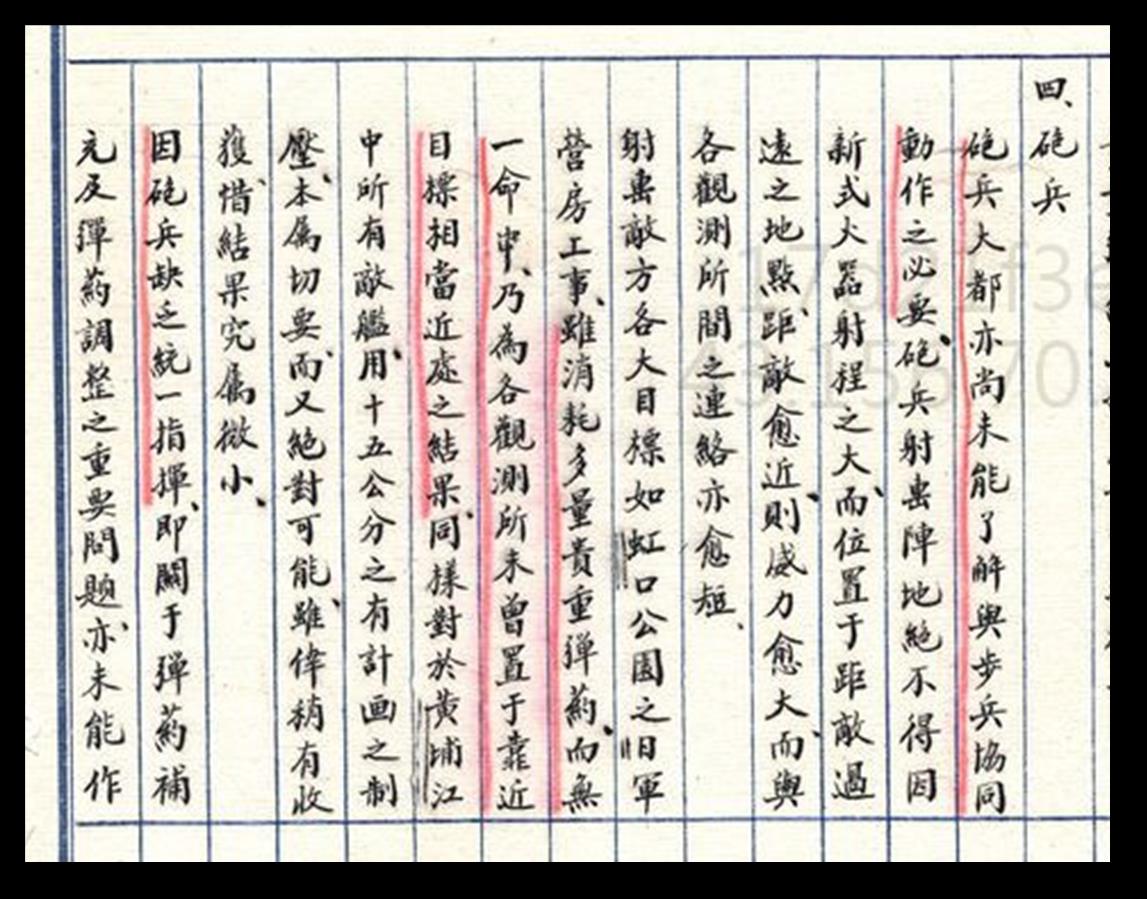 四、砲兵
砲兵大都亦尚未能了解與步兵協同
動作之必要、砲兵射击陣地絕不得因
新式火器射程之大、而位置于距敵過
遠之地點、距敵愈近、則威力愈大、而與
各觀測所間之連絡亦愈短、
射击敵方各大目標如虹口公園之旧軍
營房工事、雖消耗多量貴重彈葯、而無
一命中、乃為各觀測所未曾置于靠近
目標相當近處之結果、同樣對於黃埔江
中所有敵艦、用十五公分之有計画之制
壓、本属切要、而又絕對可能、雖偉稍有收
獲、惜結果究属微小、
因砲兵缺乏統一指揮、即關于彈葯補
充及彈葯調整之重要問題、亦未能作